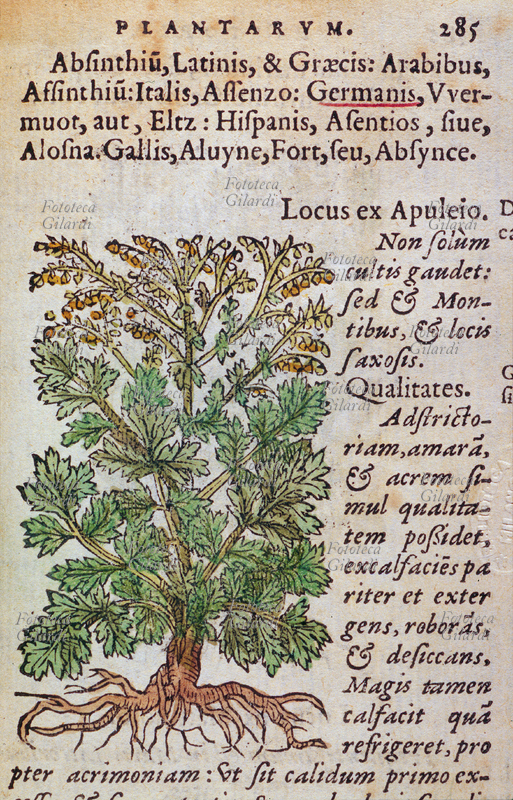 PLANTARVM. 285
Abſinthiũ, Latinis, & Græcis: Arabibus,
Aſſinthiũ: Italis, Aſſenzo: Germanis, Vver-
muot, aut, Eltz: Hiſpanis, Aſentios, ſiue,
Aloſna. Gallis, Aluyne, Fort, ſeu, Abſynce.
Locus ex Apuleio.
Non ſolum
cultis gaudet:
ſed & Mon-
tibus, & locis
ſaxoſis.
Qualitates.
Adſtricto-
riam, amarã,
& acrem ſi-
mul qualita-
tem poſſidet,
excalfaciẽs pa
riter et exter
gens, roborãs,
& deſiccans.
Magis tamen
calfacit quã
refrigeret, pro
pter acrimoniam: Vt ſit calidum primo ex-
Fototeca
Gilardi